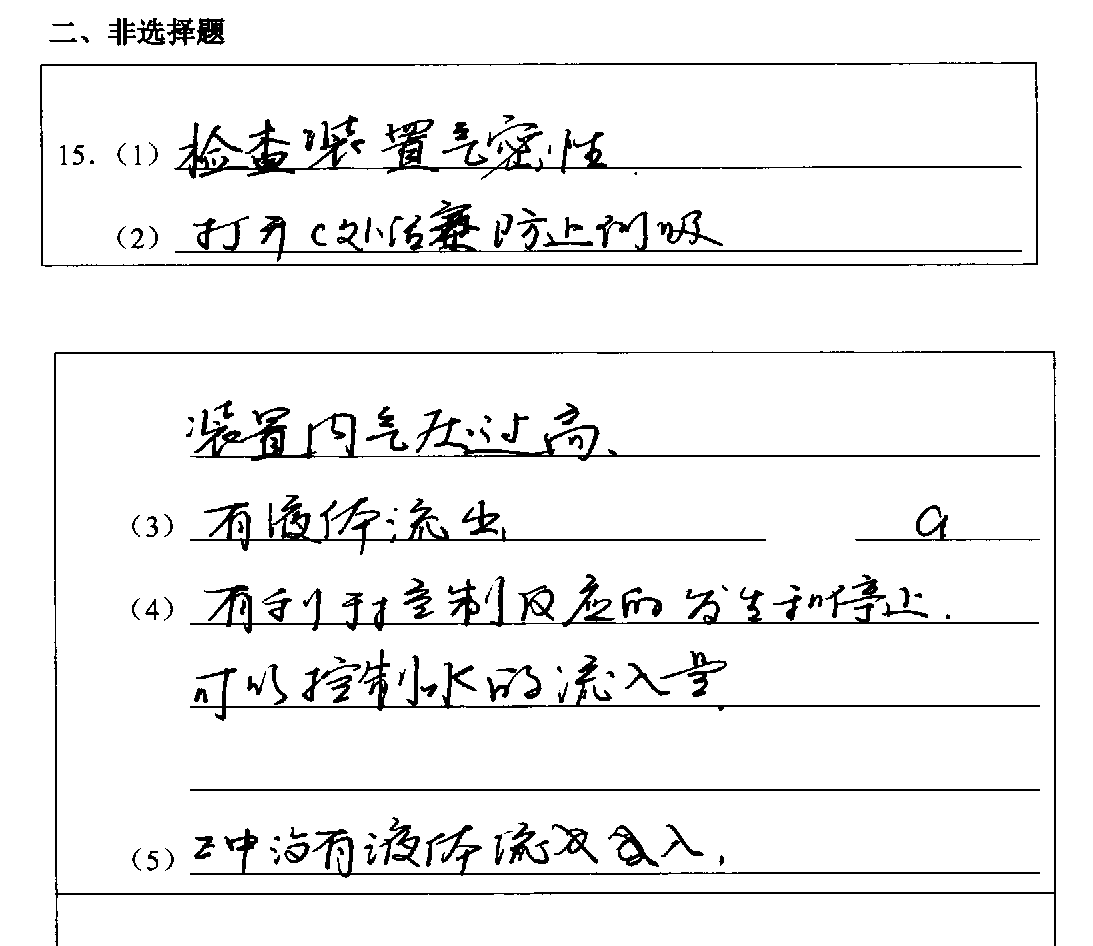 二、非选择题
15.（1）检查装置气密性.
（2）打开C处活塞防止倒吸
装置内气压过高、
（3）有液体流出 a
（4）有利于控制反应的发生和停止.
可以控制水的流入量.
（5）Z中没有液体流入.